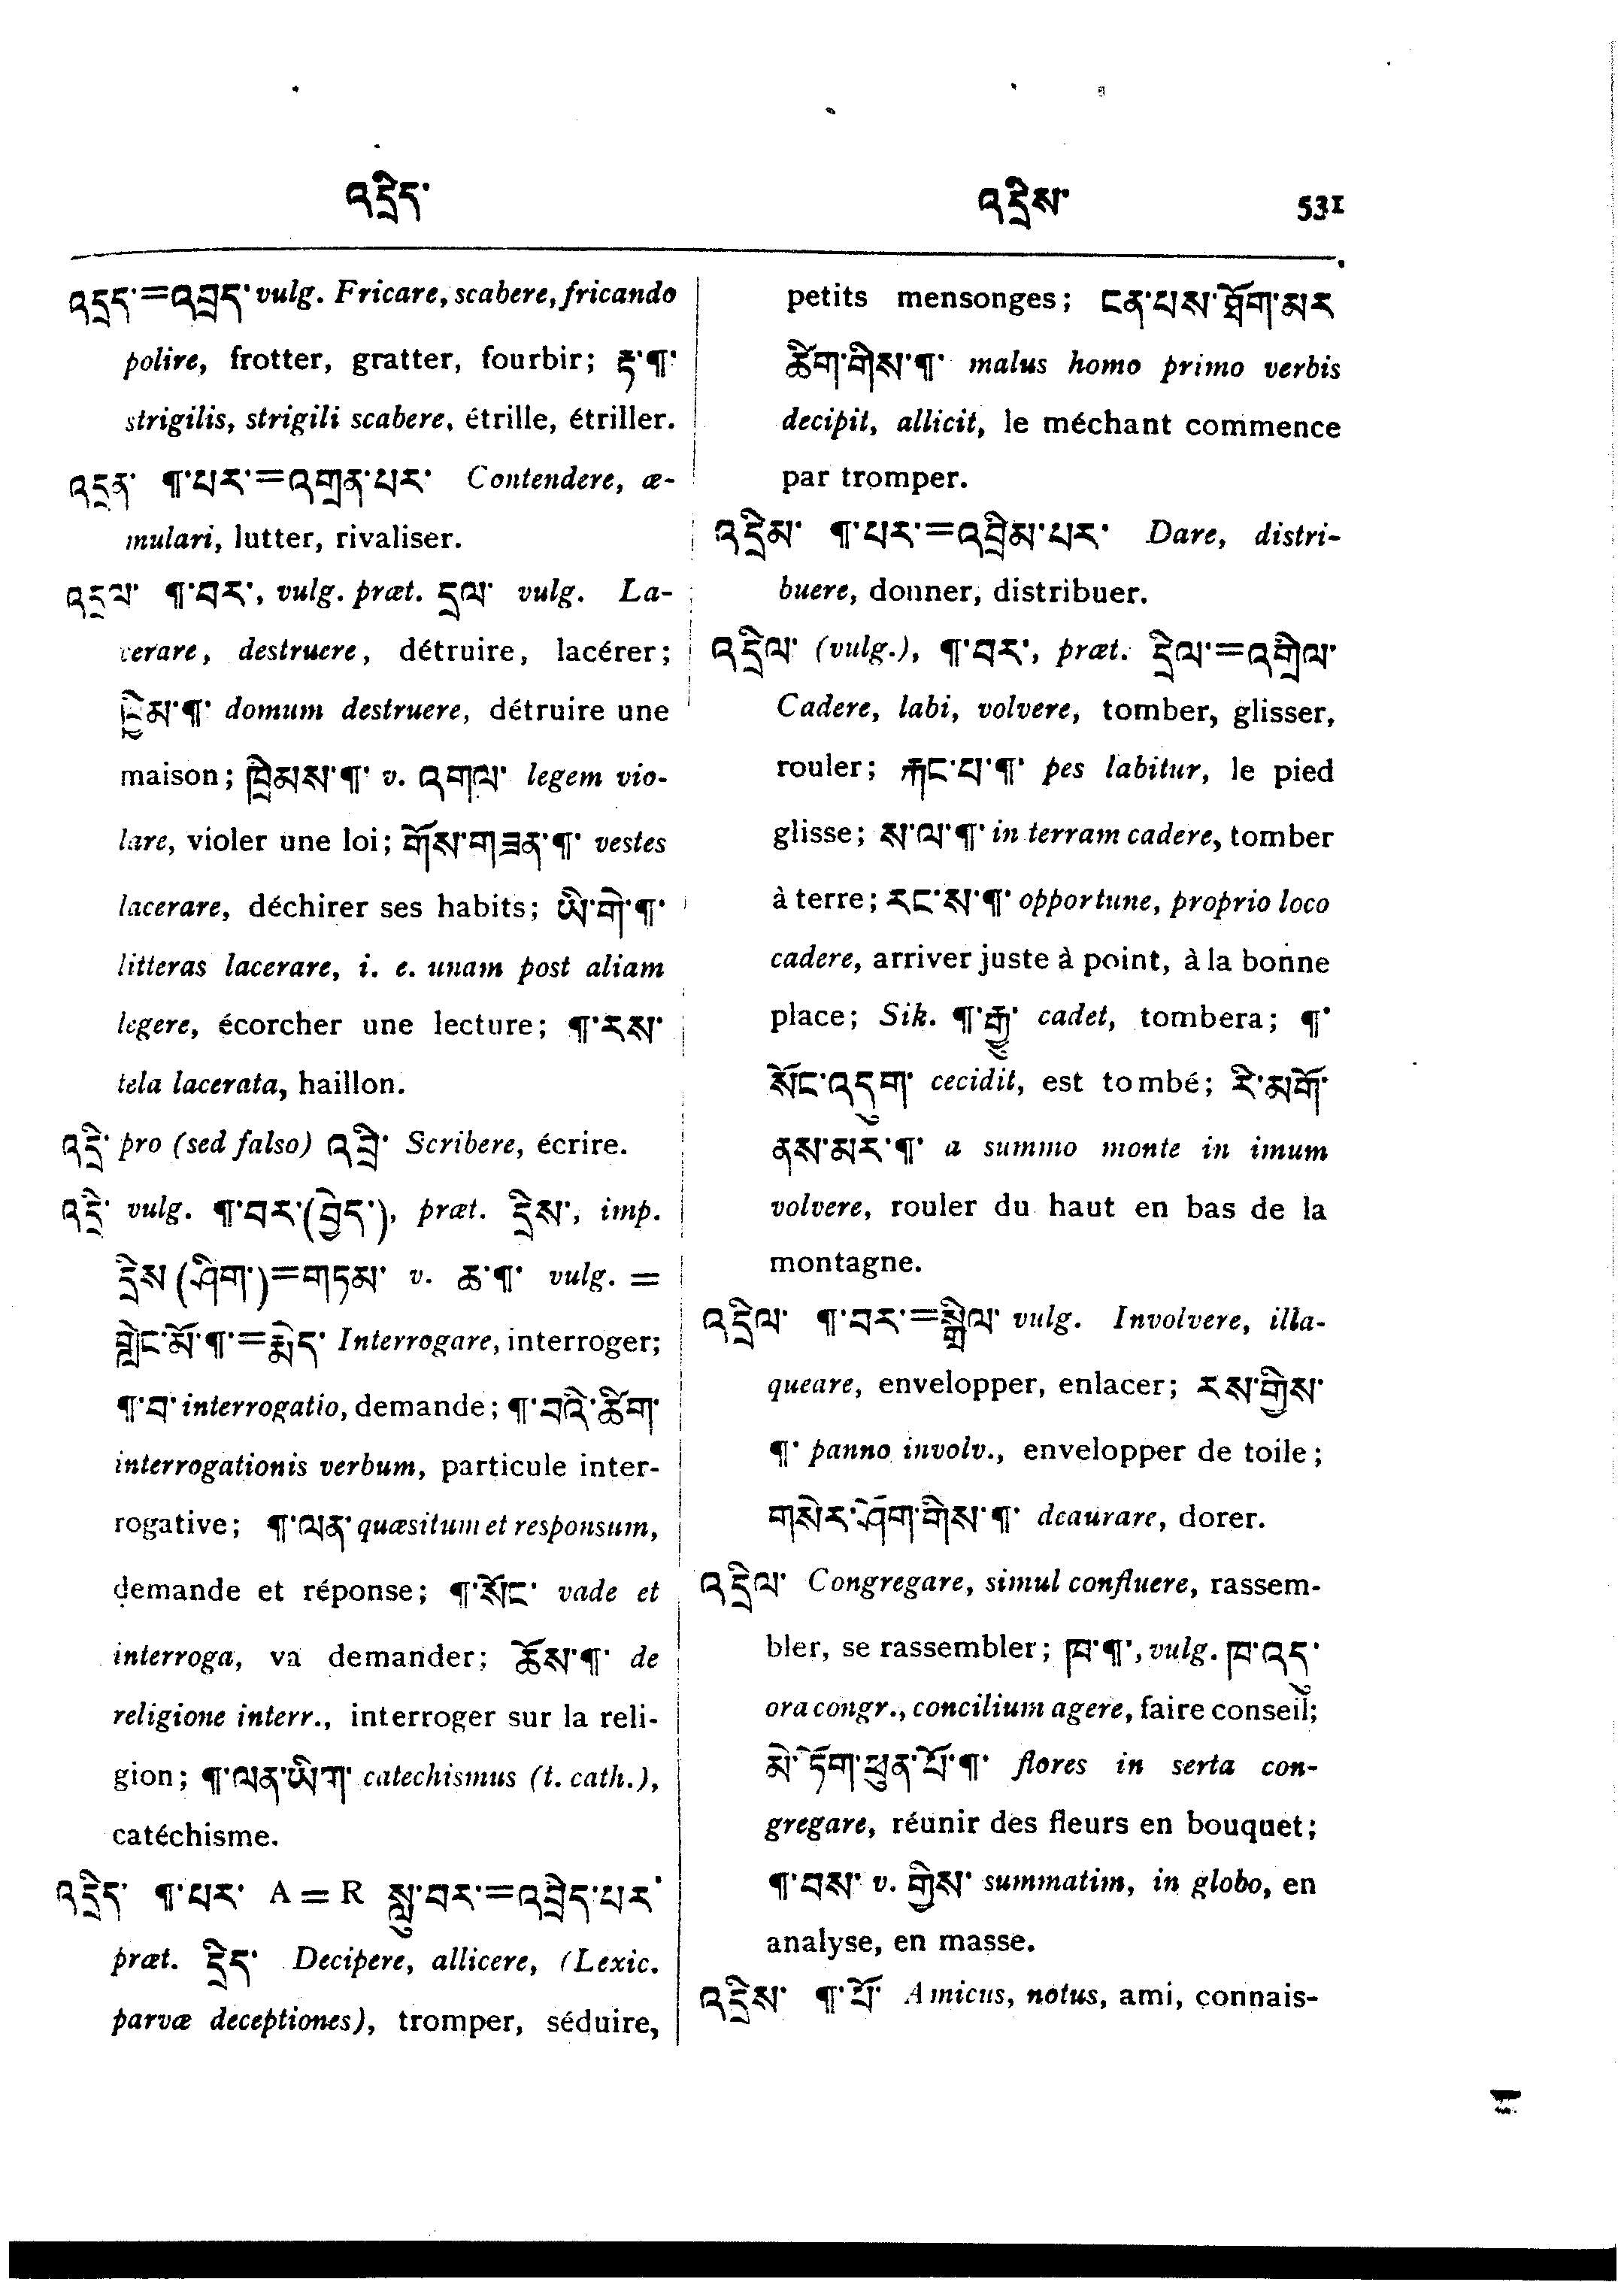 འདྲིད་
འདྲིས་ 531
འདྲད་=འབྲད་ vulg. Fricare, scabere, fricando
polire, frotter, gratter, fourbir; རྟ་¶་
strigilis, strigili scabere, étrille, étriller.
འདྲན་ ¶་པར་=འགྲན་པར་ Contendere, æ-
mulari, lutter, rivaliser.
འདྲལ་ ¶་བར་, vulg. præt. དྲལ་ vulg. La-
cerare, destruere, détruire, lacérer;
ཁྱིམ་¶་ domum destruere, détruire une
maison; ཁྲིམས་¶་ v. འགལ་ legem vio-
lare, violer une loi; གོས་གཟན་¶་ vestes
lacerare, déchirer ses habits; ཡི་གེ་¶་
litteras lacerare, i. e. unam post aliam
legere, écorcher une lecture; ¶་རས་
tela lacerata, haillon.
འདྲི་ pro (sed falso) འབྲི་ Scribere, écrire.
འདྲི་ vulg. ¶་བར་(བྱེད་), præt. དྲིས་, imp.
དྲིས (ཤིག་)=གཏམ་ v. ཆ་¶་ vulg. =
གླེང་མོ་¶་=རྨེད་ Interrogare, interroger;
¶་བ་ interrogatio, demande; ¶་བའི་ཚིག་
interrogationis verbum, particule inter-
rogative; ¶་ལན་ quæsitum et responsum,
demande et réponse; ¶་སོང་ vade et
interroga, va demander; ཆོས་¶་ de
religione interr., interroger sur la reli-
gion; ¶་ལན་ཡི་ག་ catechismus (t. cath.),
catéchisme.
འདྲིད་ ¶་པར་ A = R སླུ་བར་=འབྲིད་པར་
præt. དྲིད་ Decipere, allicere, (Lexic.
parvæ deceptiones), tromper, séduire,
petits mensonges; ངན་པས་ཐོག་མར
ཚིག་གིས་¶་ malus homo primo verbis
decipit, allicit, le méchant commence
par tromper.
འདྲིམ་ ¶་པར་=འབྲིམ་པར་ Dare, distri-
buere, donner, distribuer.
འདྲིལ་ (vulg.), ¶་བར་, præt. དྲིལ་=འགྲིལ་
Cadere, labi, volvere, tomber, glisser,
rouler; རྐང་པ་¶་ pes labitur, le pied
glisse; ས་ལ་¶་ in terram cadere, tomber
à terre; རང་ས་¶་ opportune, proprio loco
cadere, arriver juste à point, à la bonne
place; Sik. ¶་རྒྱུ་ cadet, tombera; ¶་
སོང་འདུག་ cecidit, est tombé; རི་མགོ་
ནས་མར་¶་ a summo monte in imum
volvere, rouler du haut en bas de la
montagne.
འདྲིལ་ ¶་བར་=སྒྲིལ་ vulg. Involvere, illa-
queare, envelopper, enlacer; རས་གྱིས་
¶་ panno involv., envelopper de toile;
གསེར་ཤོག་གིས་¶་ deaurare, dorer.
འདྲིལ་ Congregare, simul confluere, rassem-
bler, se rassembler; ཁ་¶་, vulg. ཁ་འདུ་
ora congr., concilium agere, faire conseil;
མེ་ཏོག་ཕུན་པོ་¶་ flores in serta con-
gregare, réunir des fleurs en bouquet;
¶་བས་ v. གྱིས་ summatim, in globo, en
analyse, en masse.
འདྲིས་ ¶་པོ་ Amicus, notus, ami, connais-